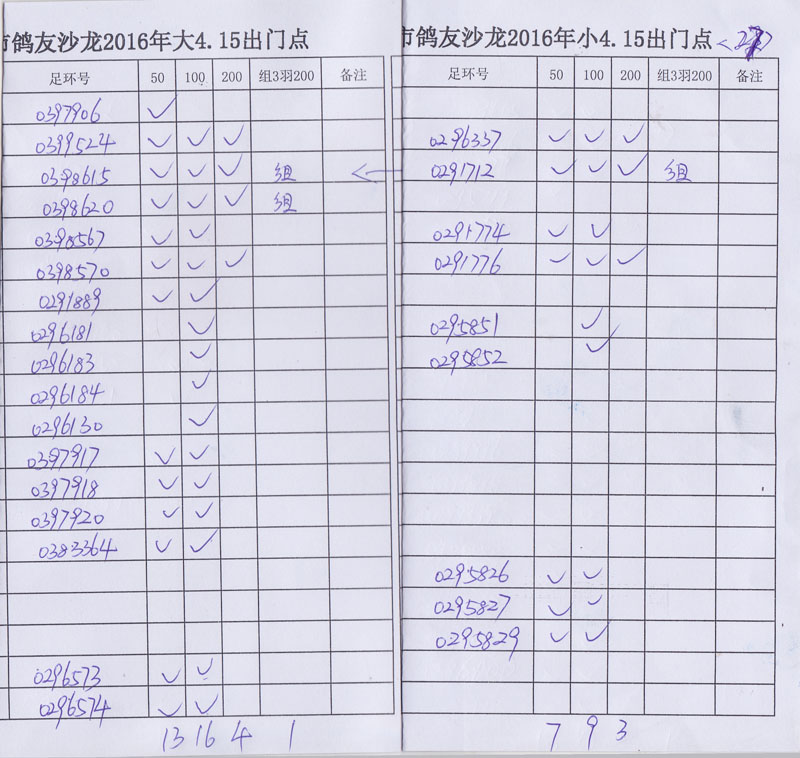 市鸽友沙龙2016年大4.15出门点
足环号 50 100 200 组3羽200 备注
0397906 ✓
0399524 ✓ ✓ ✓
0398615 ✓ ✓ ✓ 组 ←
0398620 ✓ ✓ ✓ 组
0398567 ✓ ✓
0398570 ✓ ✓ ✓
0291889 ✓ ✓
0296181 ✓
0296183 ✓
0296184 ✓
0296130 ✓
0397917 ✓ ✓
0397918 ✓ ✓
0397920 ✓ ✓
0383364 ✓ ✓
0296573 ✓ ✓
0296574 ✓ ✓
13 16 4 1
市鸽友沙龙2016年小4.15出门点
足环号 50 100 200 组3羽200 备注
0296337 ✓ ✓ ✓
0291712 ✓ ✓ ✓ 组
0291774 ✓ ✓
0291776 ✓ ✓ ✓
0295851 ✓
0295852 ✓
0295826 ✓ ✓
0295827 ✓ ✓
0295829 ✓ ✓
7 9 3